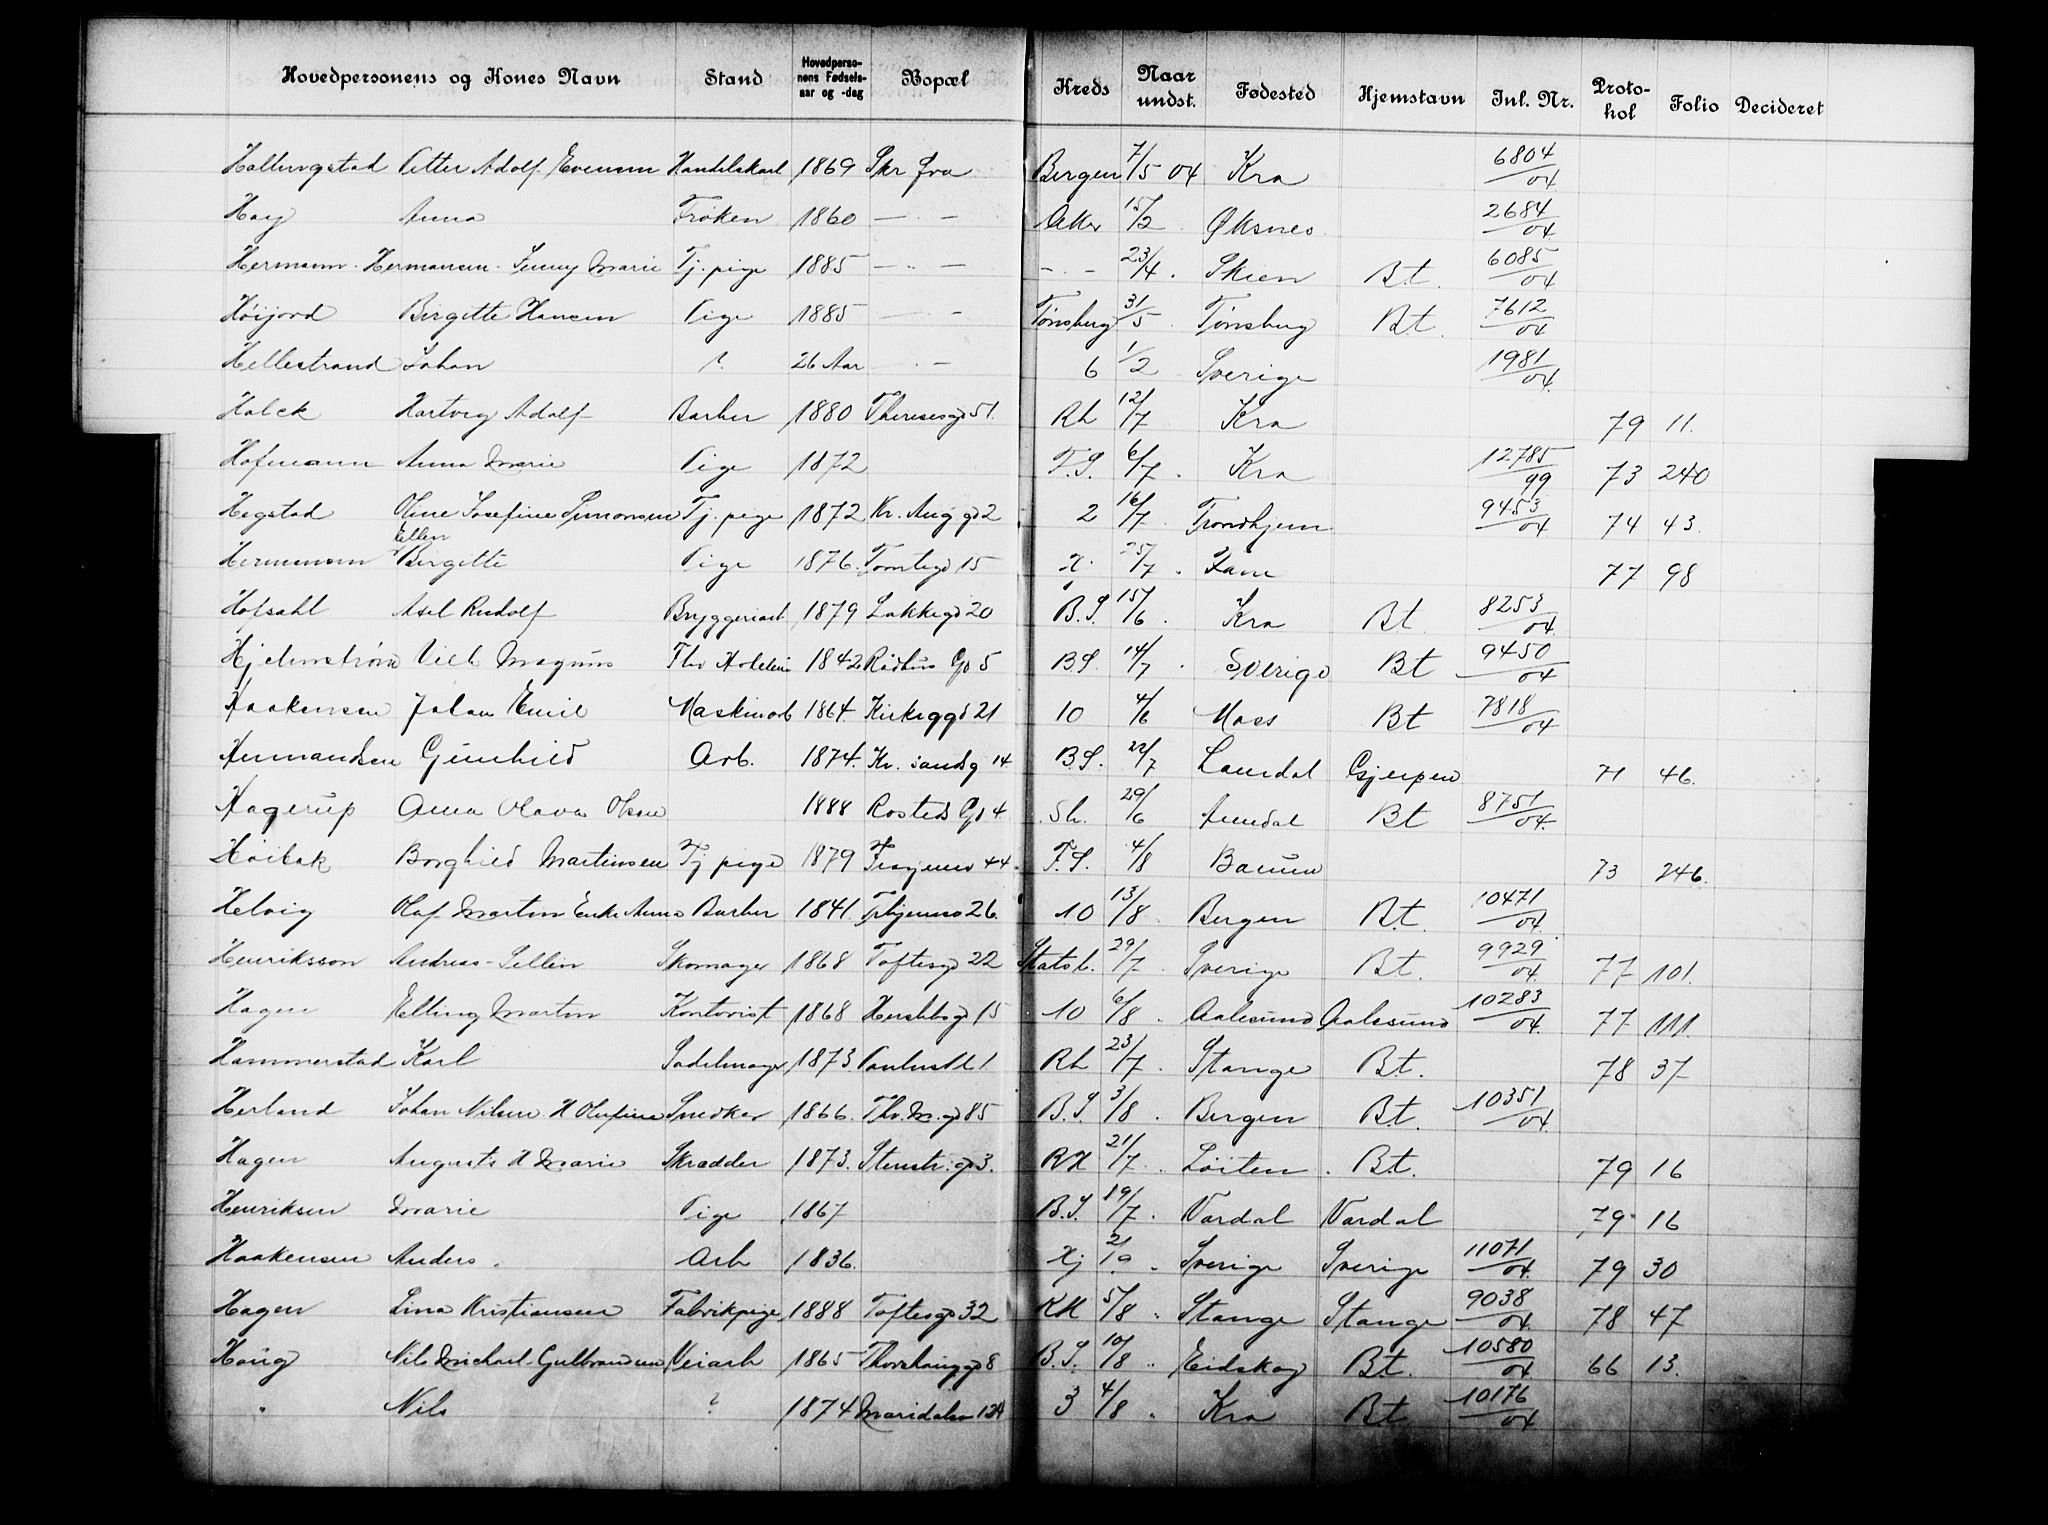 Hovedpersonens og Kones Navn Stand Hovedperso-nens Fødsels-aar og -dag Bopæl Kreds Naar undst. Fødested Hjemstavn Inl. Nr. Proto-kol Folio Decideret
Hallingstad Petter Adolf Evensen Handelskarl 1869 Skr fra Bergen 7/5 04 Kra 6804/04
Hay Anna Frøken 1860 — " — Aker 15/2 Øksnes 2684/04
Hermann - Hermansen - Jenny Marie Tj. pige 1885 — " — — " — 23/4 Skien Bt. 6085/04
Höijord Birgitte Hansen Pige 1885 — " — Tønsberg 31/5 Tønsberg Bt. 7612/04
Hellestrand Johan ? 26 Aar — " — 6 1/2 Sverige 1981/04
Holck Hartvig Adolf Barber 1880 Theresesgd 51. Rh 12/7 Kra 79 11.
Hofmann Anna Marie Pige 1872 F.S. 6/7 Kra 12785/99 73 240
Hegstad Oline Josefine Simonsen Tj. pige 1872 Kr. Aug gd 2 2 16/7 Trondhjem 9453/04 74 43.
Ellen
Hermansen Birgitte Pige 1876. Tomtegd 15 25/7 77 98
Hofsahl Axel Rudolf Bryggeriarb 1879 Lakkegd 20 B.S. 15/6 Kra Bt. 8253/04
Hjelmström Vilh Magnus 1842 Rådhus Gd 5 B.S. 14/7 Sverige Bt 9450/04
Haakensen Johan Emil Maskinarb 1864 Kirkeggd 21 10 4/6 Moss Bt 7818/04
Hermandsen Gunhild Arb. 1874. Kr. sandsg 14 B.S. 22/7 Laurdal Gjerpen 71 46.
Hagerup Anna Olava Olsen 1888 Rosteds Gd 4 Sh. 29/6 Arendal Bt 8751/04
Höibak Borghild Martinsen Tj pige 1879 44 F.S. 4/8 Bærum 73 246.
Helvig Olaf Martin Enke Anna Barber 1841. Trhjemsv 26. 10 13/8 Bergen Bt. 10471/04
Henriksson Andreas - Sellin Skomager 1868 Toftesgd 22 Statsb. 29/7 Sverige Bt. 9929/04 77 101.
Hagen Elling Martin Kontorist 1868 Herslebsgd 15 10 6/8 Aalesund Aalesund 10283/04 77 111.
Hammerstad Karl Sadelmager 1873 1 Rh 23/7 Stange Bt. 78 37
Herland Johan Nilsen H Olufine Snedker 1866. Thv. M. gd 85 B.S. 3/8 Bergen Bt. 10351/04
Hagen Augusts H Marie Skradder 1873. Stenstr. gd 3. RH 21/7 Löiten Bt. 79 16
Henriksen Marie Pige 1867 B.S. 19/7 Vardal Vardal 79 16
Haakensen Anders. Arb 1836. Hj 2/9 Sverige Sverige 11071/04 79 30
Hagen Lina Kristiansen Fabrikpige 1888 Toftesgd 32 KH 5/8 Stange Stange 9038/04 78 47
Haug Nils Michael Gulbrandsen Veiarb 1865 Thorshauggd 8 B.S. 10/8 Eidskog Bt. 10580/04 66 13.
" Nils ? 1874 Maridalsv 124 3 4/8 Kra Bt 10176/04